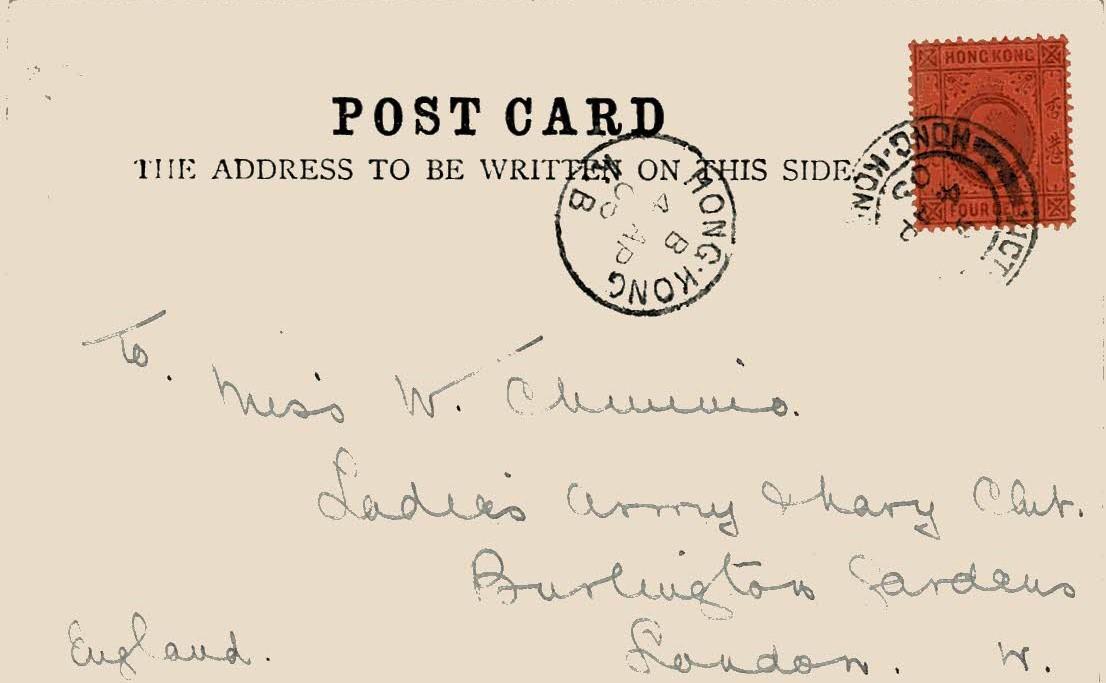 HONG KONG
POST CARD
THE ADDRESS TO BE WRITTEN ON THIS SIDE
HONG·KONG
B
4 AP
HONG·KONG
VICT
4 AP
03
香港
FOUR
To.
Miss W.
Ladies Army & Navy Club.
Burlington Gardens
London. W.
England.